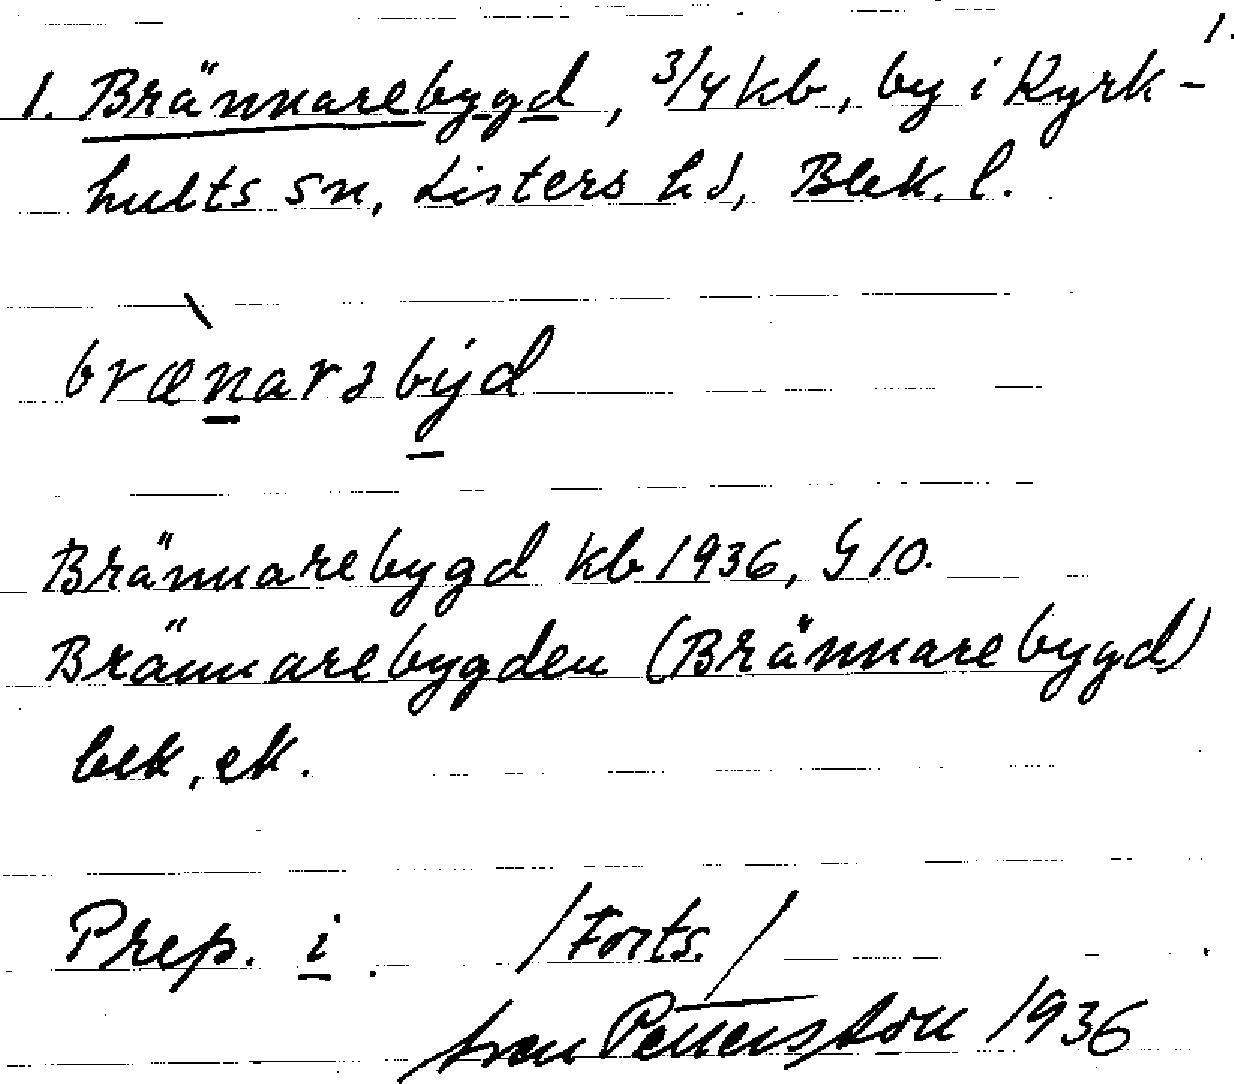 1.
1. Brännarebygd, 3/4 kb, by i Kyrk-
hults sn, Listers hd, Blek. l.
brænarəbyd
Brännarebygd kb 1936, G 10.
Brännarebygden (Brännarebygd)
bek, ek.
Prep. i. /Forts./
Sven Pettersson 1936